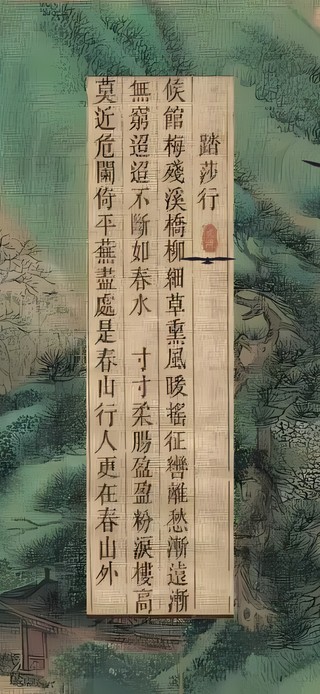 踏莎行
候館梅殘溪橋柳細草熏風暖搖征轡離愁漸遠漸
無窮迢迢不斷如春水　寸寸柔腸盈盈粉淚樓高
莫近危闌倚平蕪盡處是春山行人更在春山外